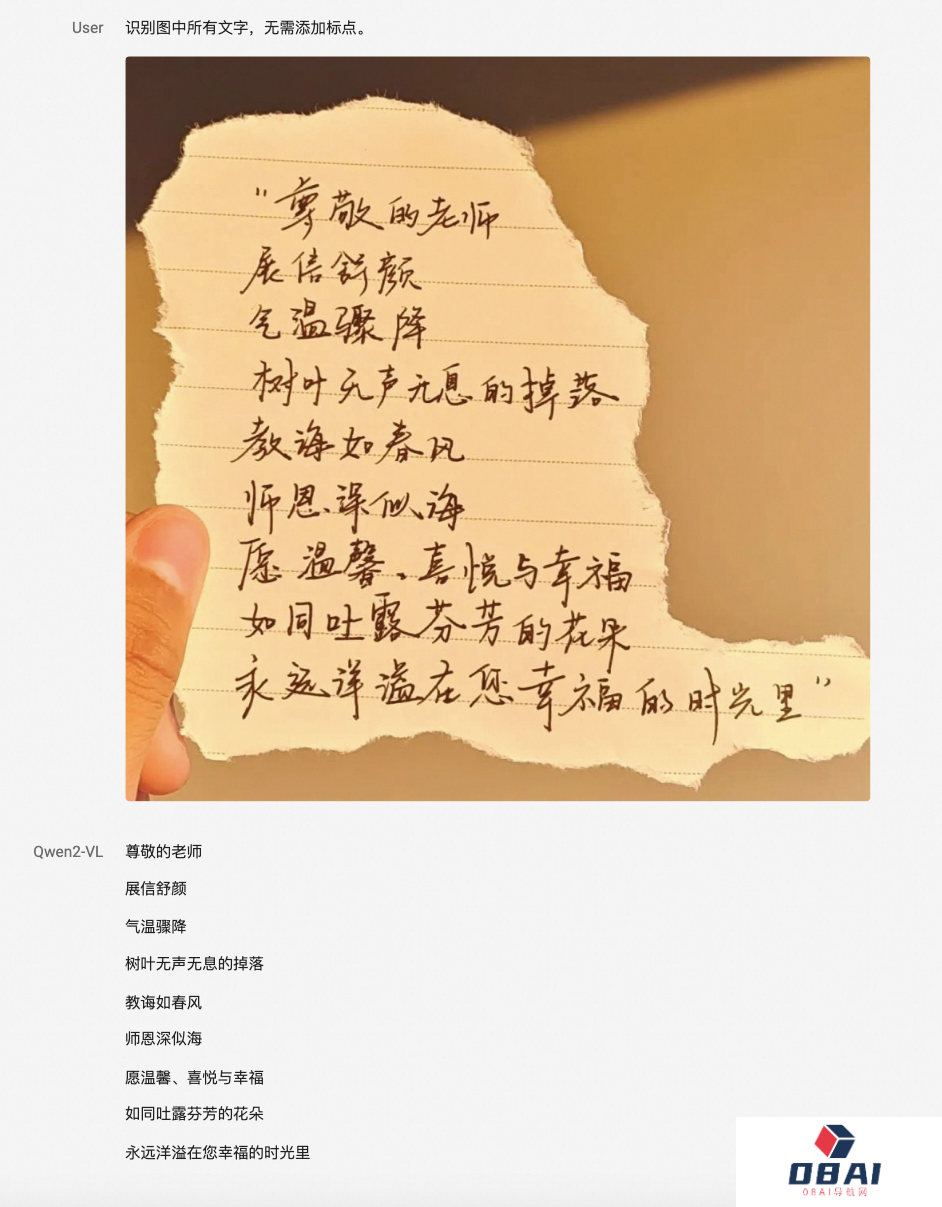 User 识别图中所有文字，无需添加标点。
"尊敬的老师
展信舒颜
气温骤降
树叶无声无息的掉落
教诲如春风
师恩深似海
愿温馨、喜悦与幸福
如同吐露芬芳的花朵
永远洋溢在您幸福的时光里"
Qwen2-VL 尊敬的老师
展信舒颜
气温骤降
树叶无声无息的掉落
教诲如春风
师恩深似海
愿温馨、喜悦与幸福
如同吐露芬芳的花朵
永远洋溢在您幸福的时光里
08AI
08AI导航网